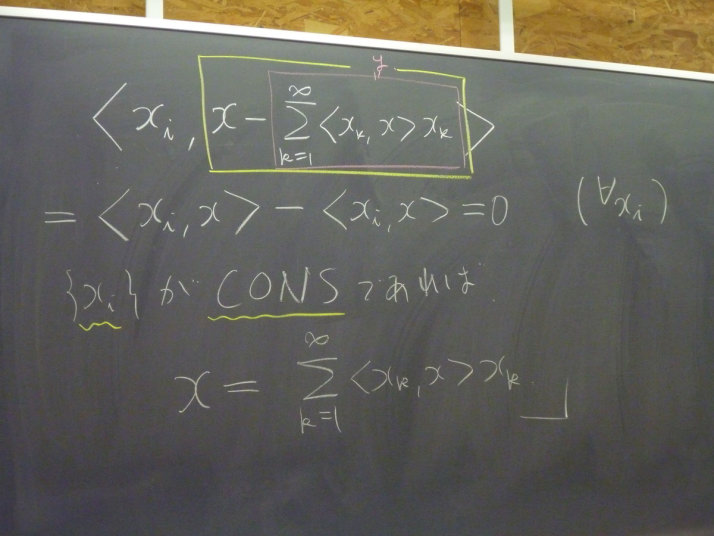 y
⟨x_i, x - \sum_{k=1}^{∞} ⟨x_k, x⟩ x_k⟩
= ⟨x_i, x⟩ - ⟨x_i, x⟩ = 0 (∀x_i)
{x_i} が CONS であれば
x = \sum_{k=1}^{∞} ⟨x_k, x⟩ x_k 」